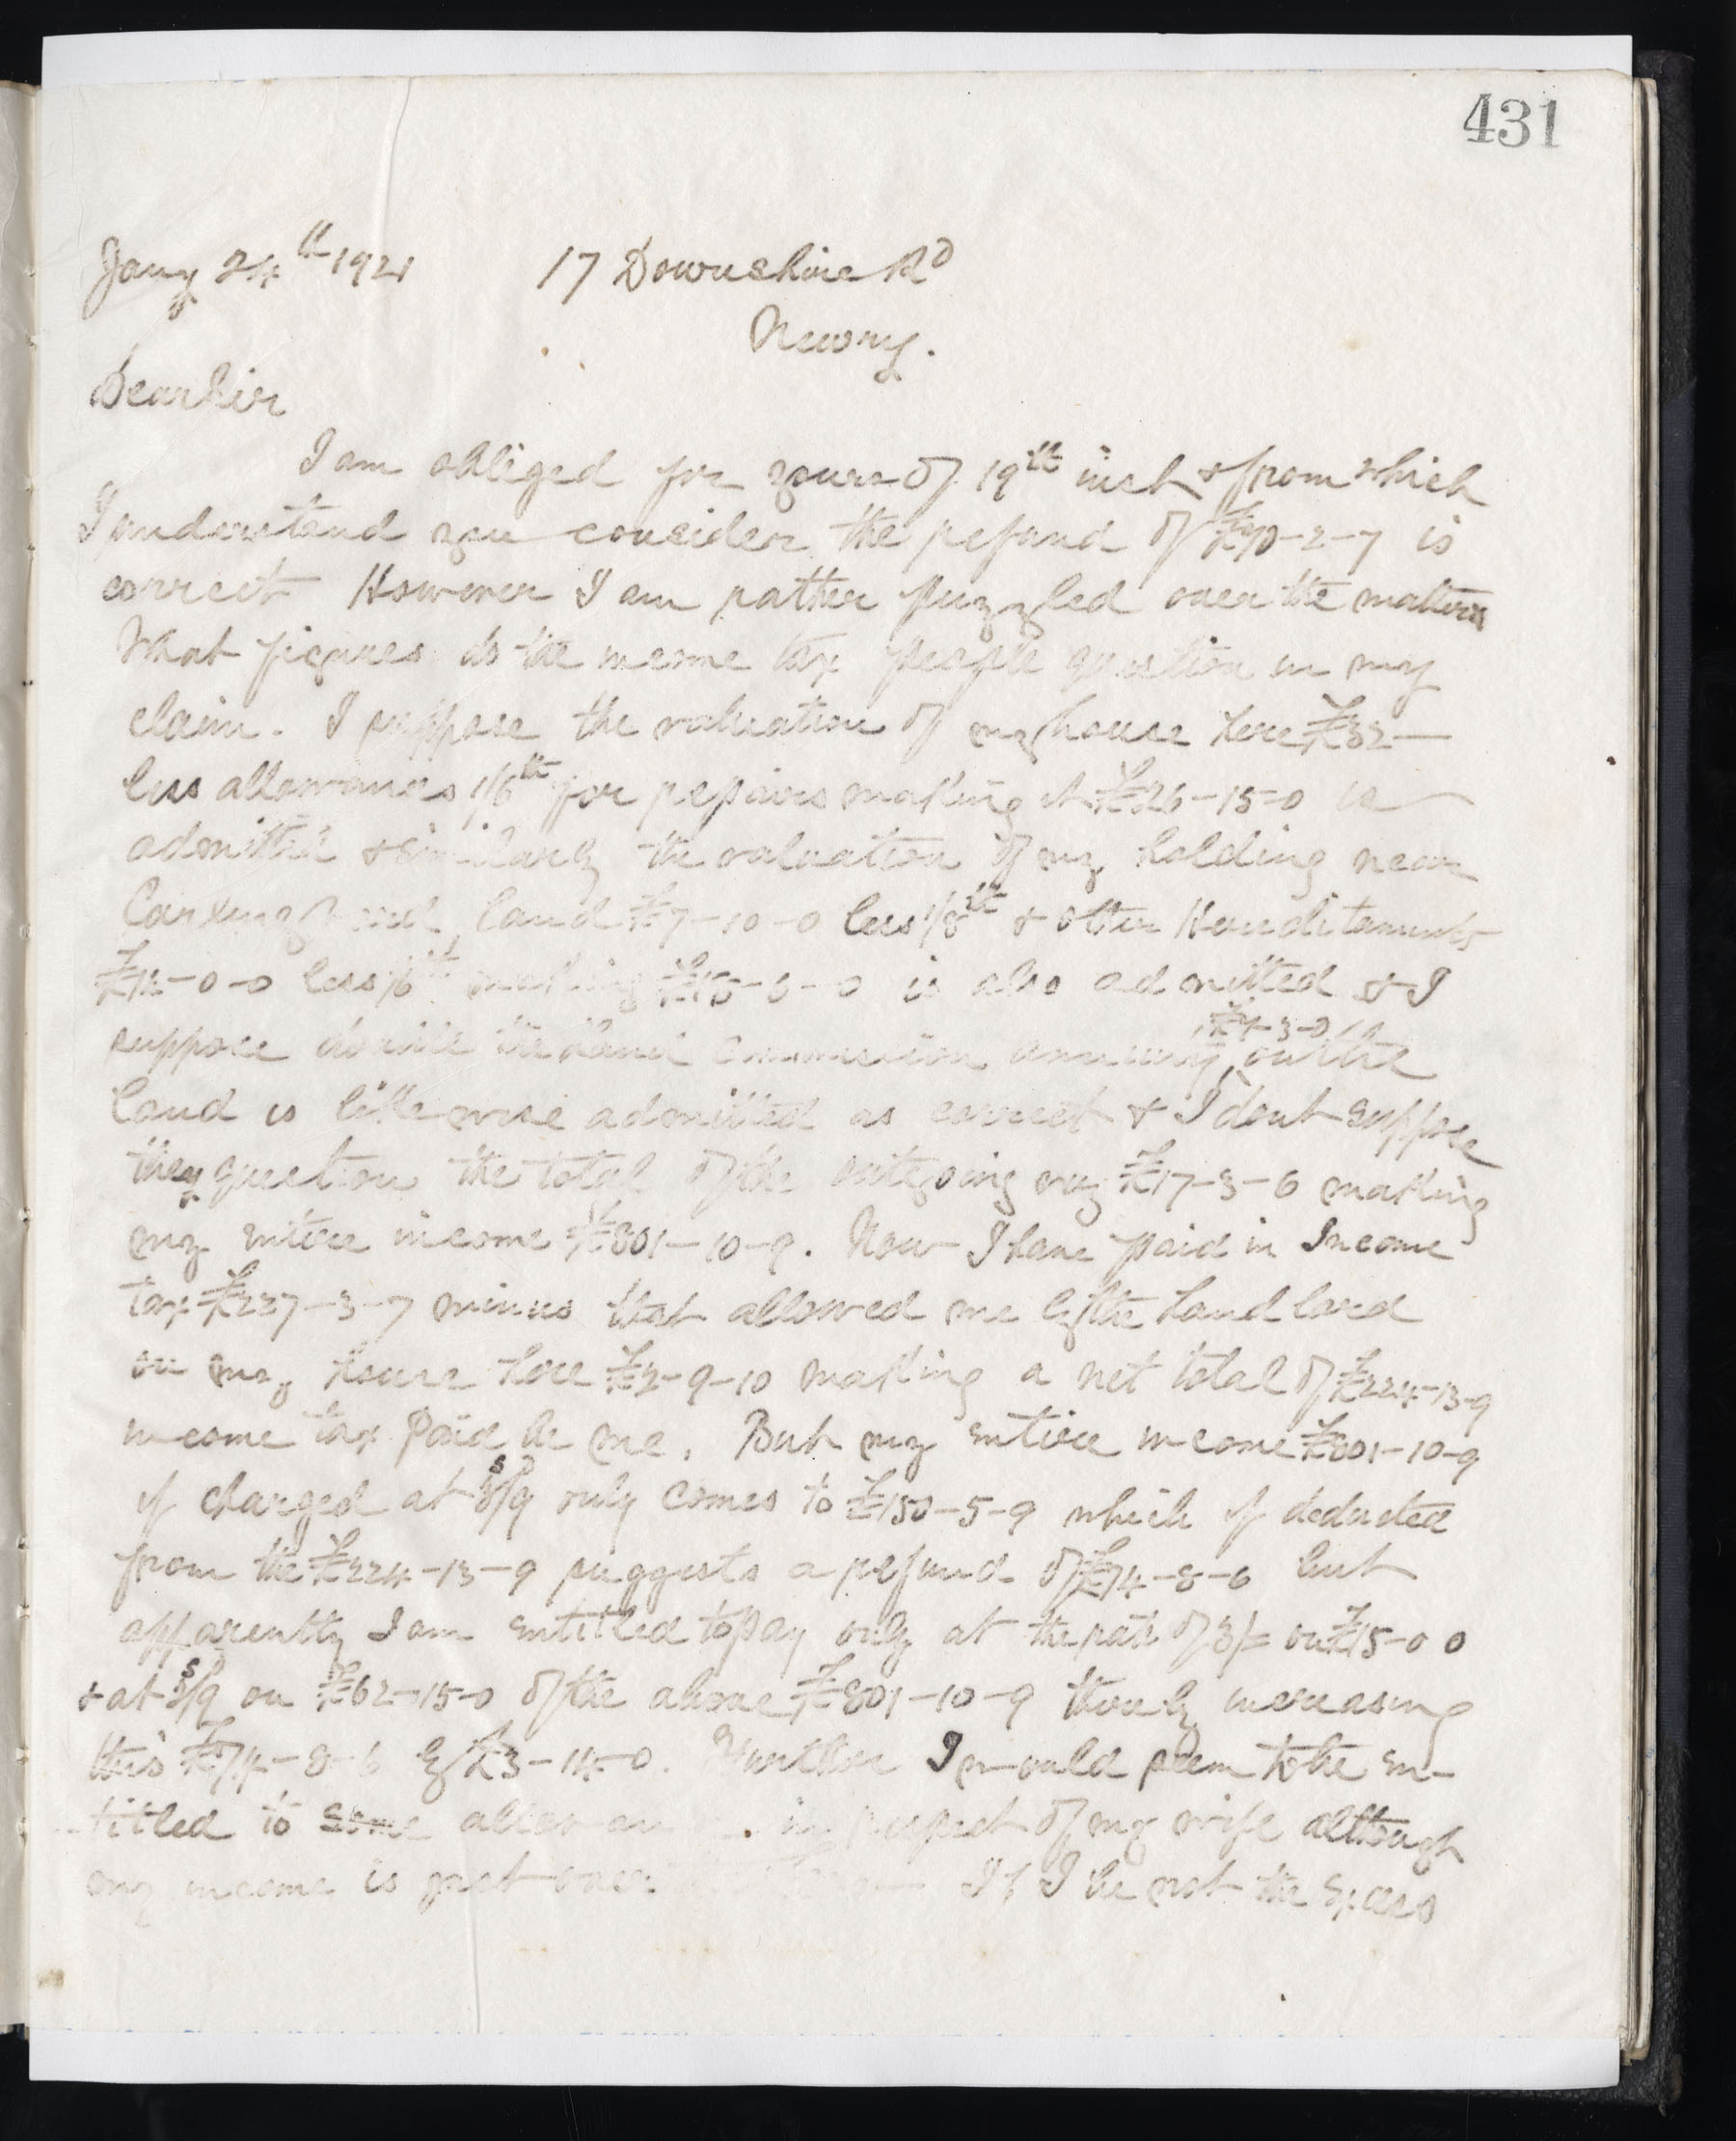 431
Jany 24th 1921 17 Downshire Rd
Newry.
Dear Sir
I am obliged for yours of 19th inst & from which
I understand you consider the refund of £70-2-7 is
correct However I am rather puzzled over the matter
What figures do the income tax people question in my
claim. I suppose the valuation of my house here £32—
less allowances 1/6th for repairs making it £26-15-0 is
admitted & similarly the valuation of my holding near
land £7-10-0 less 1/8th & other Hereditaments
£14-0-0 less 1/6th making is also admitted & I
suppose double the Land Commission annuity £4-3-0 on the
land is likewise admitted as correct & I dont suppose
they question the total of the outgoing my £17-3-6 making
my entire income £801-10-9. Now I have paid in Income
tax £227-3-7 minus that allowed me by the Landlord
on my house here £2-9-10 making a net total of £224-13-9
income tax paid be me. But my entire income £801-10-9
if charged at 3s/9d only comes to £150-5-9 which if deducted
from the £224-13-9 suggests a refund of £74-8-6 but
apparently I am entitled to pay only at the rate of 3/= on £15-0 0
& at 3s/9d on £62-15-0 of the above £801-10-9 thereby increasing
this £74-8-6 by £3-14-0. Further I would seem to be en-
titled to some in respect of my wife although
my income is just over If I be not the excess